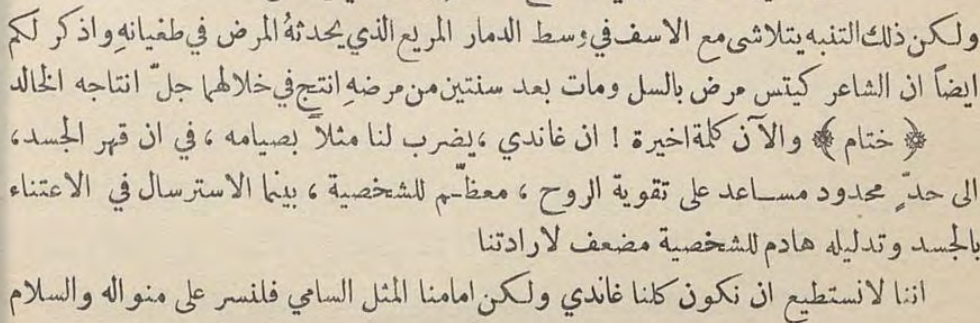 ولكن ذلك التنبه يتلاشى مع الاسف في وسط الدمار المريع الذي يحدثهُ المرض في طغيانهِ واذكر لكم
ايضاً ان الشاعر كيتس مرض بالسل ومات بعد سنتين من مرضهِ انتج في خلالهما جلّ انتاجه الخالد
﴿ ختام ﴾ والآن كلمة اخيرة ! ان غاندي ، يضرب لنا مثلاً بصيامه ، في ان قهر الجسد،
الى حدٍّ محدود مساعد على تقوية الروح ، معظّم للشخصية ، بينما الاسترسال في الاعتناء
بالجسد وتدليله هادم للشخصية مضعف لارادتنا
اننا لانستطيع ان نكون كلنا غاندي ولكن امامنا المثل السامي فلنسر على منواله والسلام